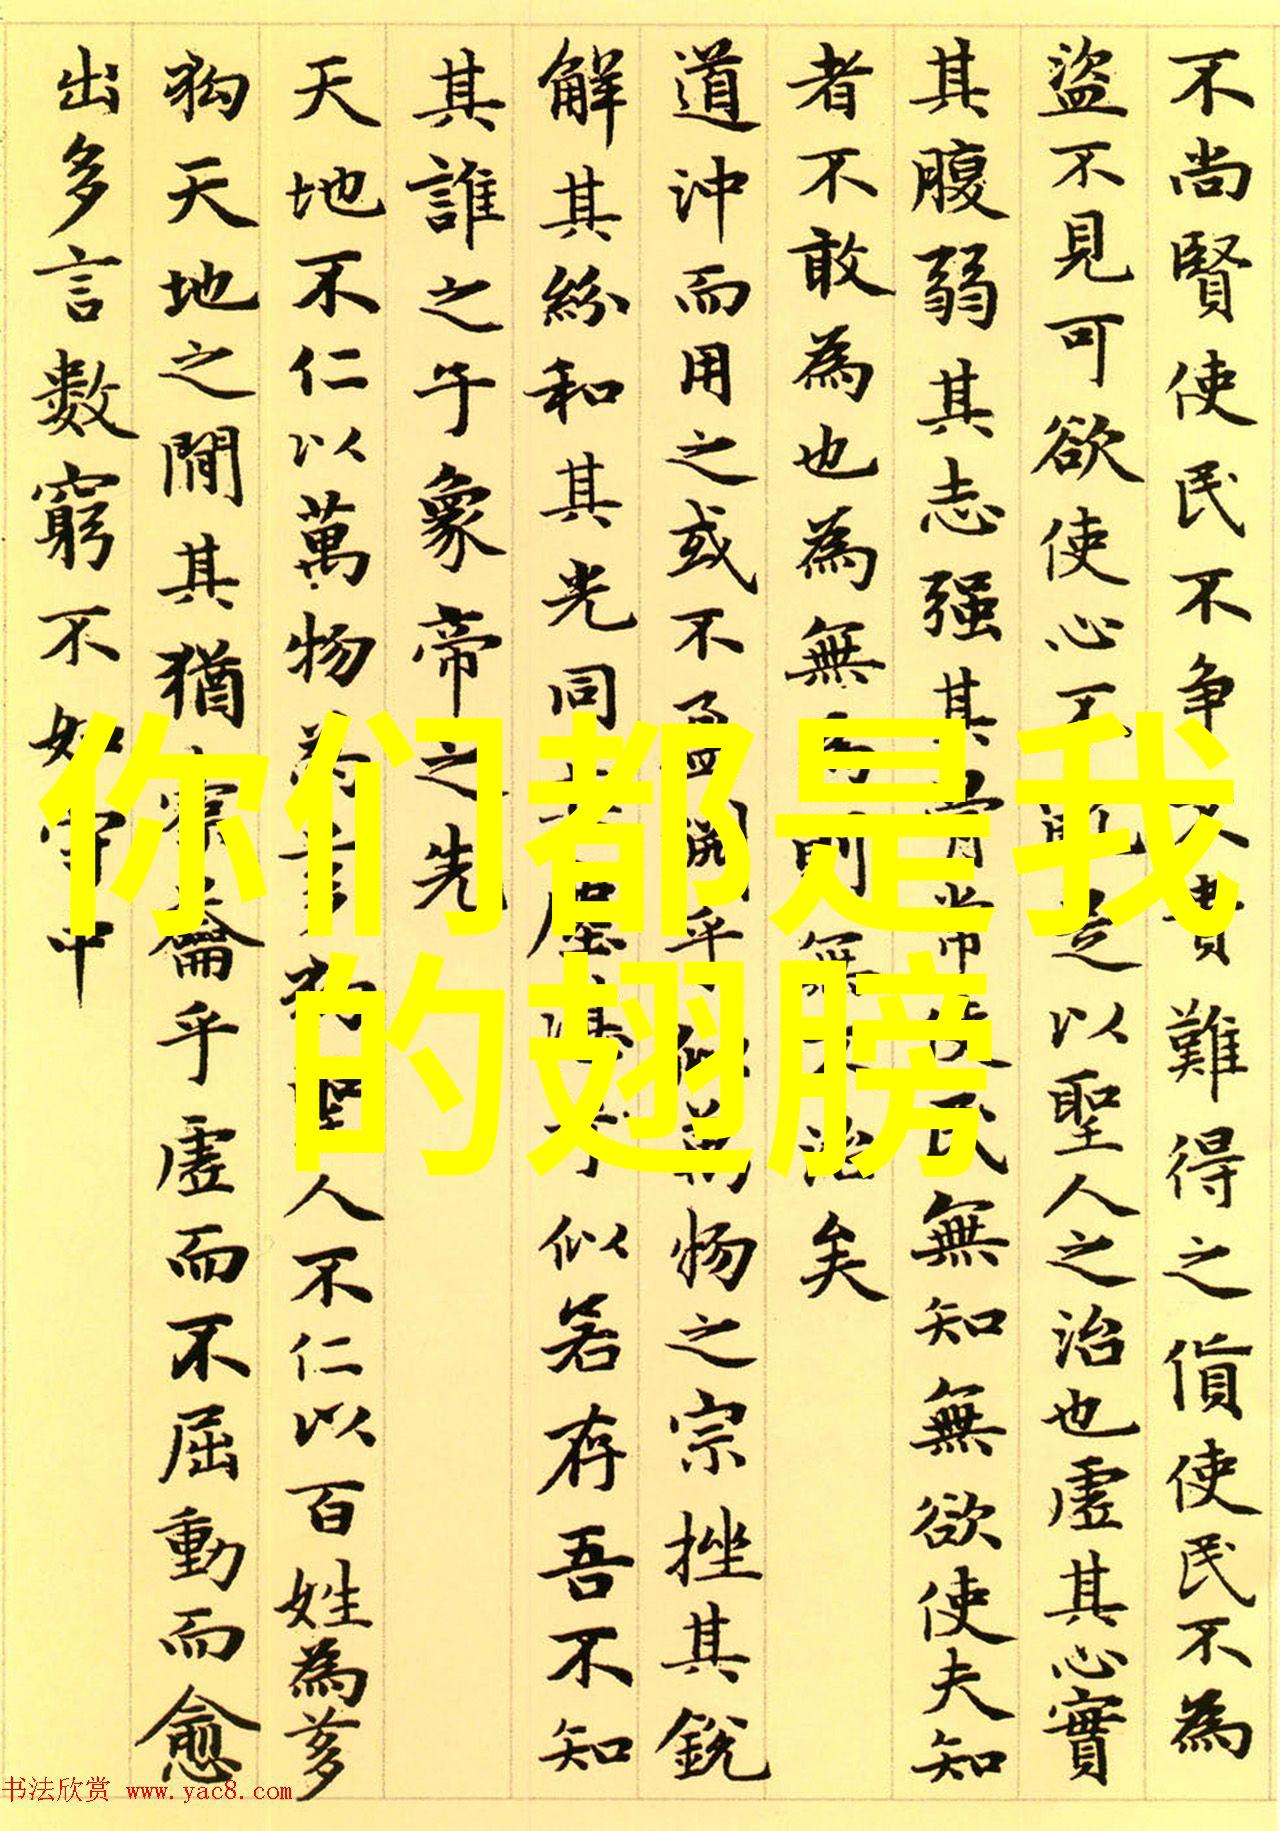 不尚賢使民不争不貴難得之貨使民不為
盜不見可欲使心不亂是以聖人之治也虛其心實
其腹弱其志强其骨常使民無知無欲使夫知
者不敢為也為無為則無不治矣
道沖而用之或不盈淵乎似萬物之宗挫其銳
解其紛和其光同其塵湛兮似若存吾不知
其誰之子象帝之先
天地不仁以萬物為芻狗聖人不仁以百姓為芻
狗天地之間其猶橐籥乎虛而不屈動而愈
出多言數窮不如守中
你们都是我
的翅膀
书法欣赏 www.yac8.com